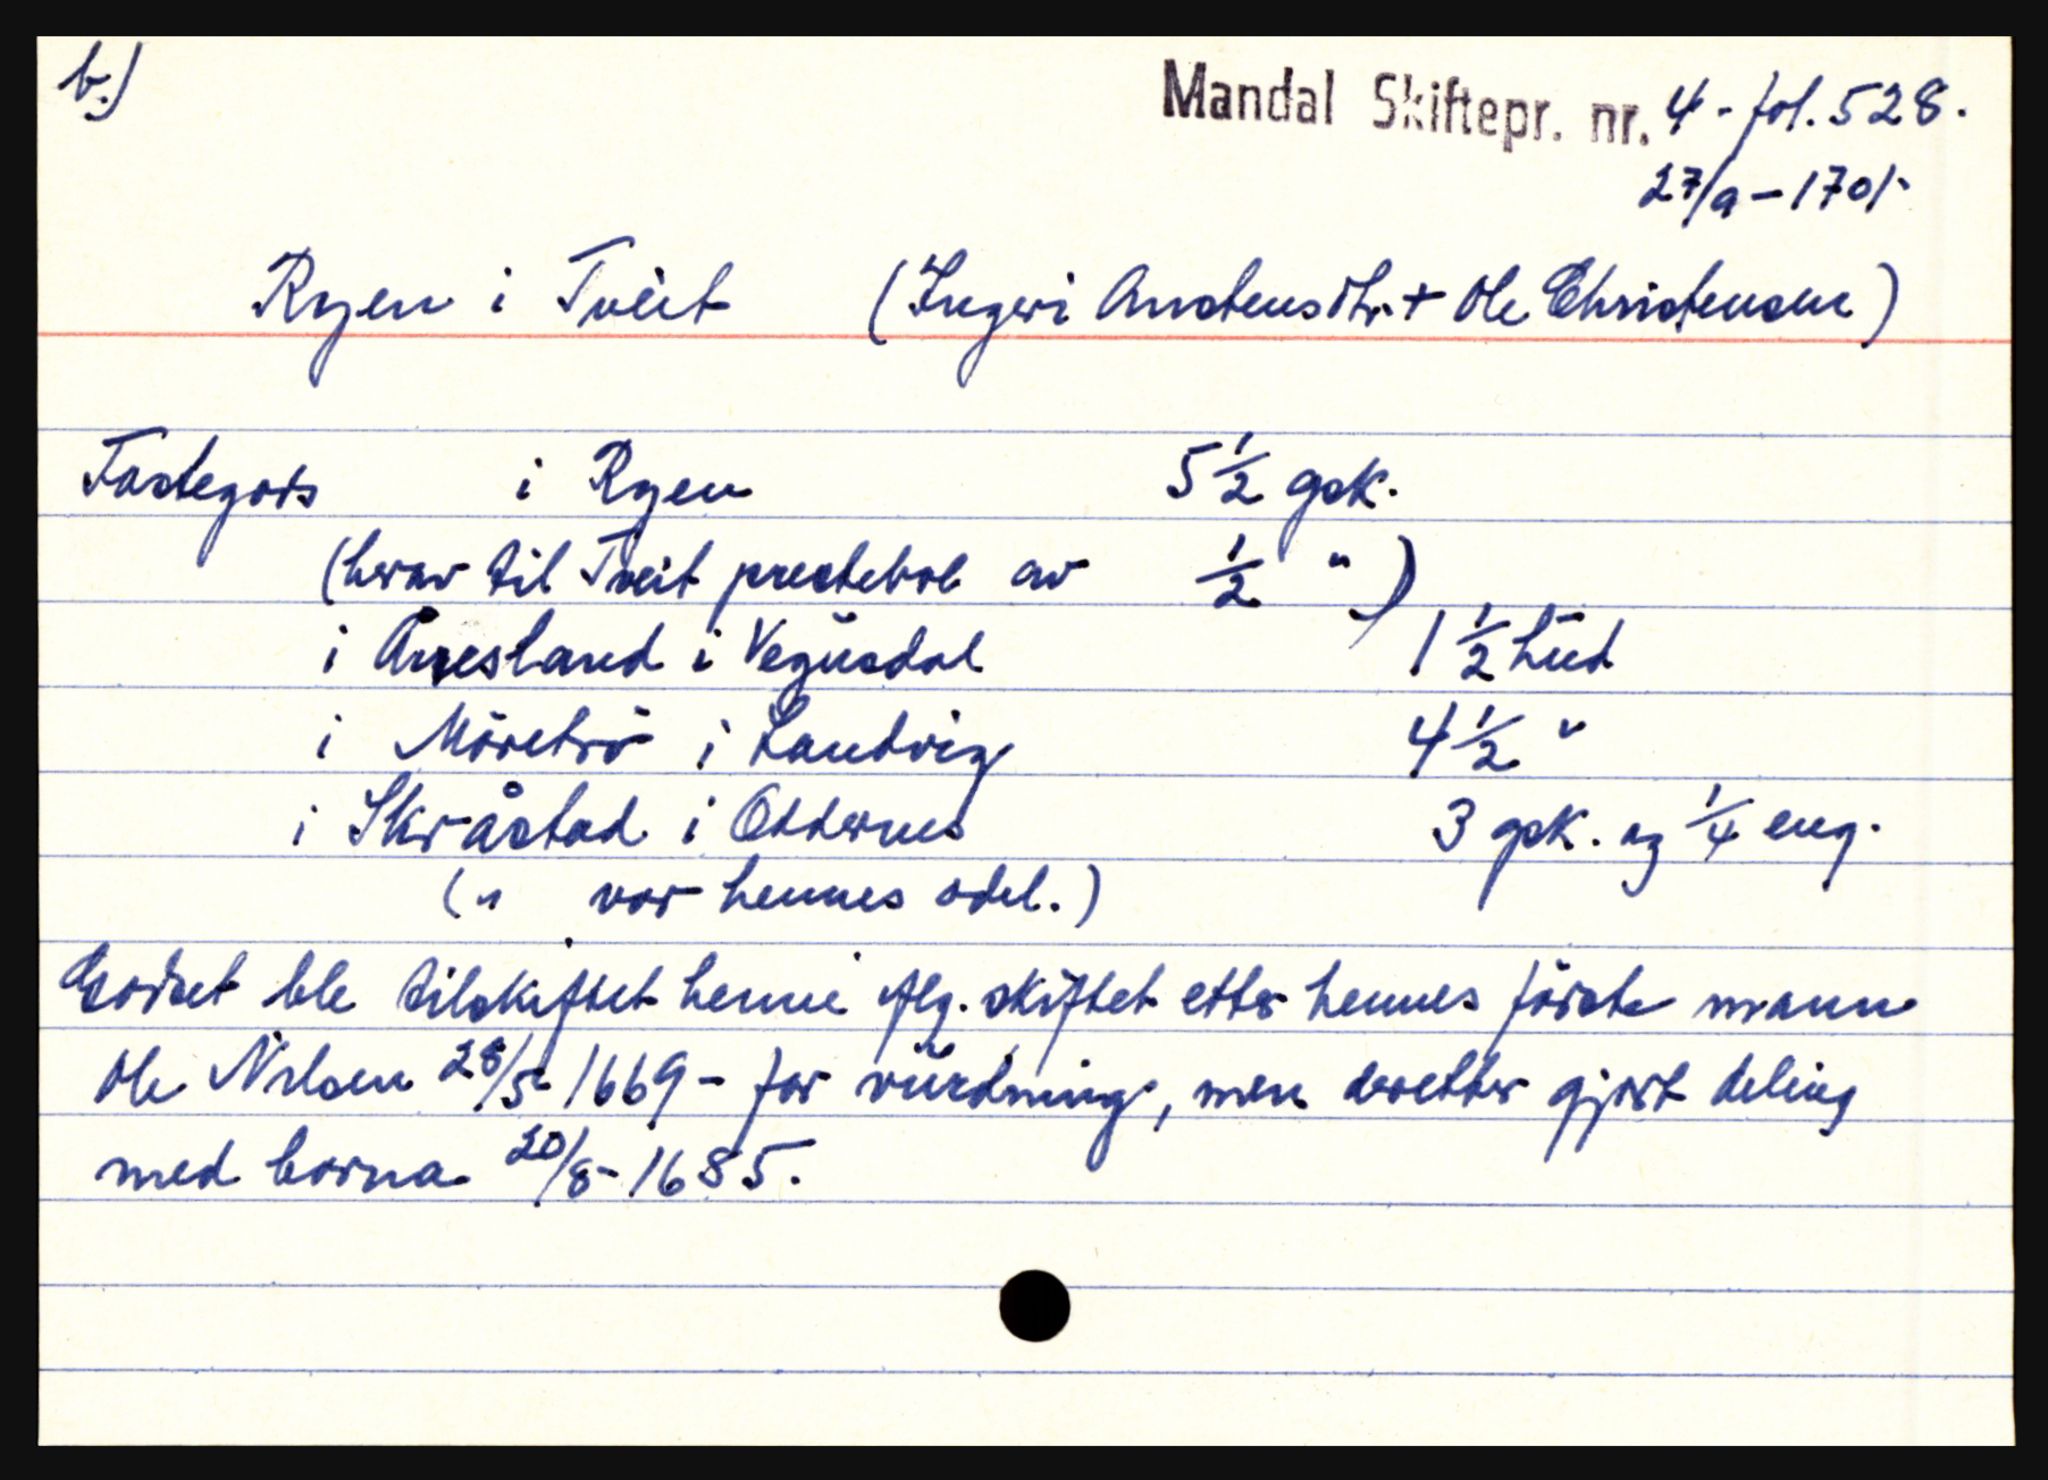 b.)
Mandal Skiftepr. nr. 4 - fol. 528.
27/9 - 1701
Ryen i Tveit (Ingeri Anstensdtr. + Ole Christensen)
Fastegods i Ryen 5 1/2 gsk.
(herav til Tveit prestebol av 1/2 " )
i Ånesland i Vegusdal 1 1/2 hud
i Möretrö i Landvig 4 1/2 "
i Skråstad i Oddernes 3 gsk. og 1/4 eng.
( " var hennes odel.)
Godset ble tilskiftet henne flg. skiftet etter hennes förste mann
Ole Nilsen 28/5 1669 - for vurdning, men deretter gjort deling
med borna 20/8 - 1685.